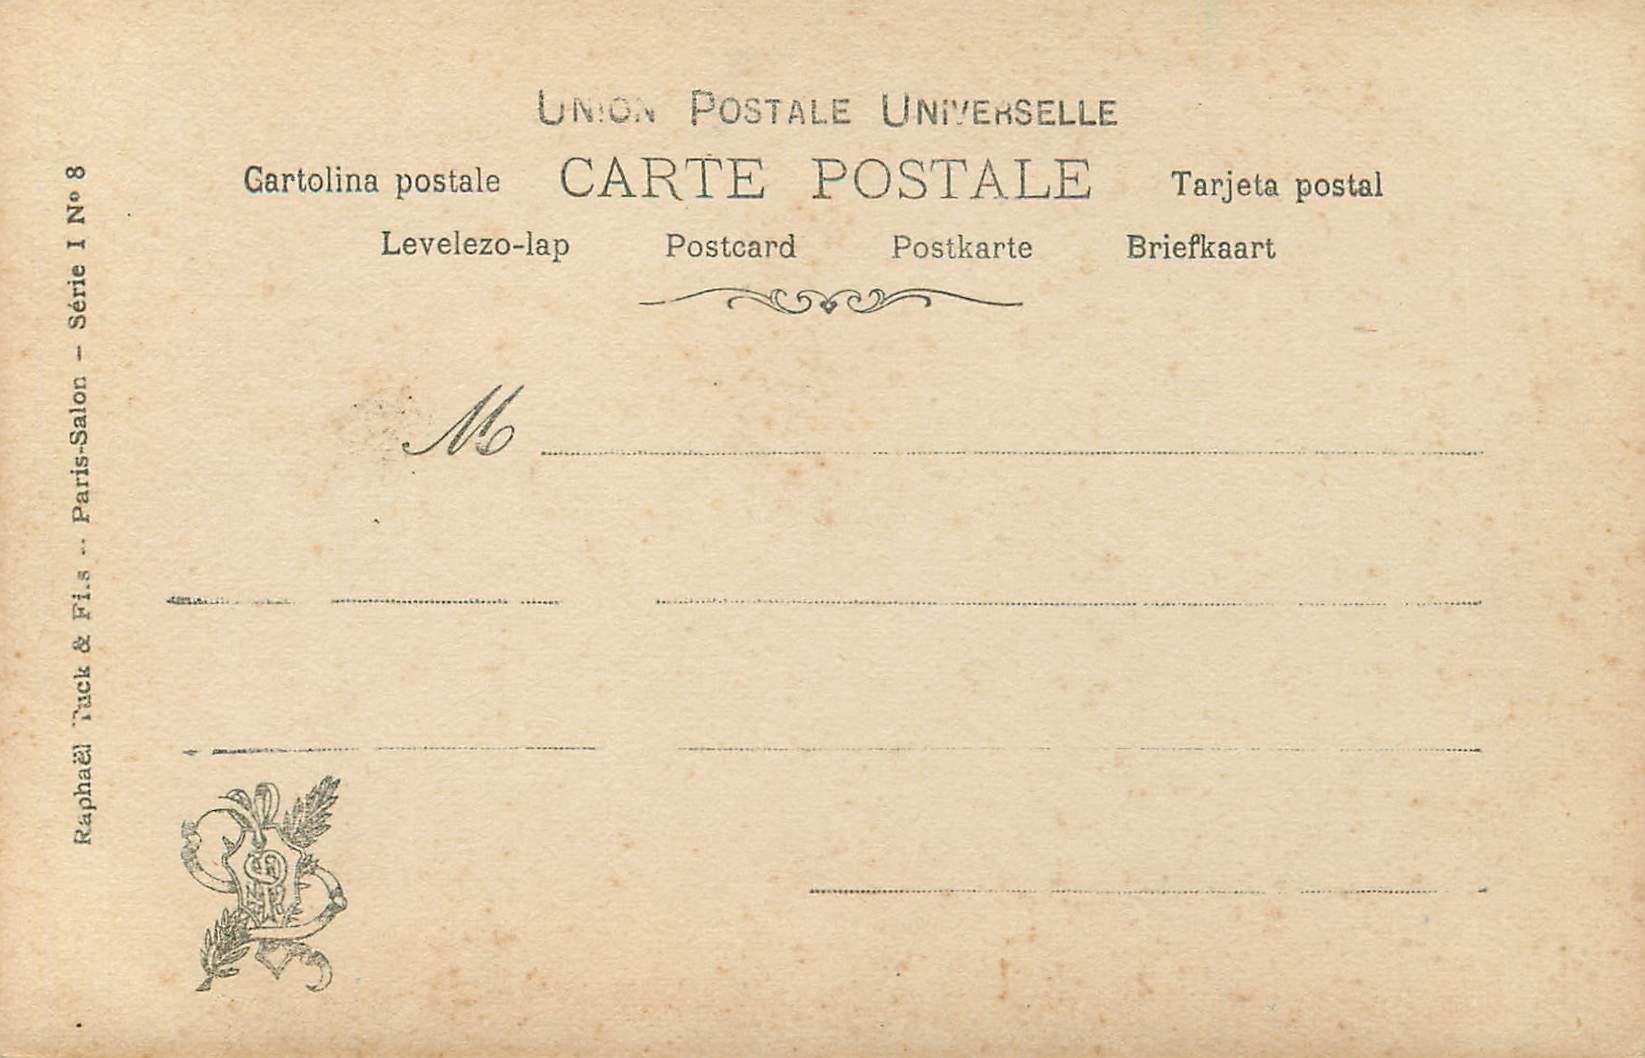 Union Postale Universelle
Cartolina postale CARTE POSTALE Tarjeta postal
Levelezo-lap Postcard Postkarte Briefkaart
M
Raphaël Tuck & Fils -- Paris-Salon – Série I Nº 8